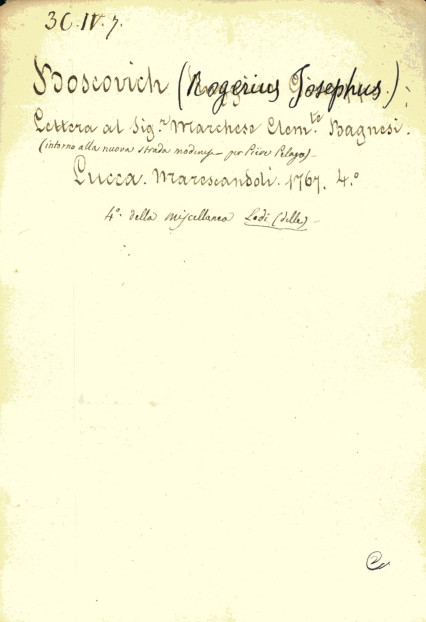 3C.IV.7.
Boscovich (Rogerius Josephus.)
Lettera al Sig.r Marchese Clem.te Bagnesi.
(intorno alla nuova strada modenese per Pieve Pelago)
Lucca. Marescandoli. 1767. 4.º
4º. della miscellanea Lodi (delle)